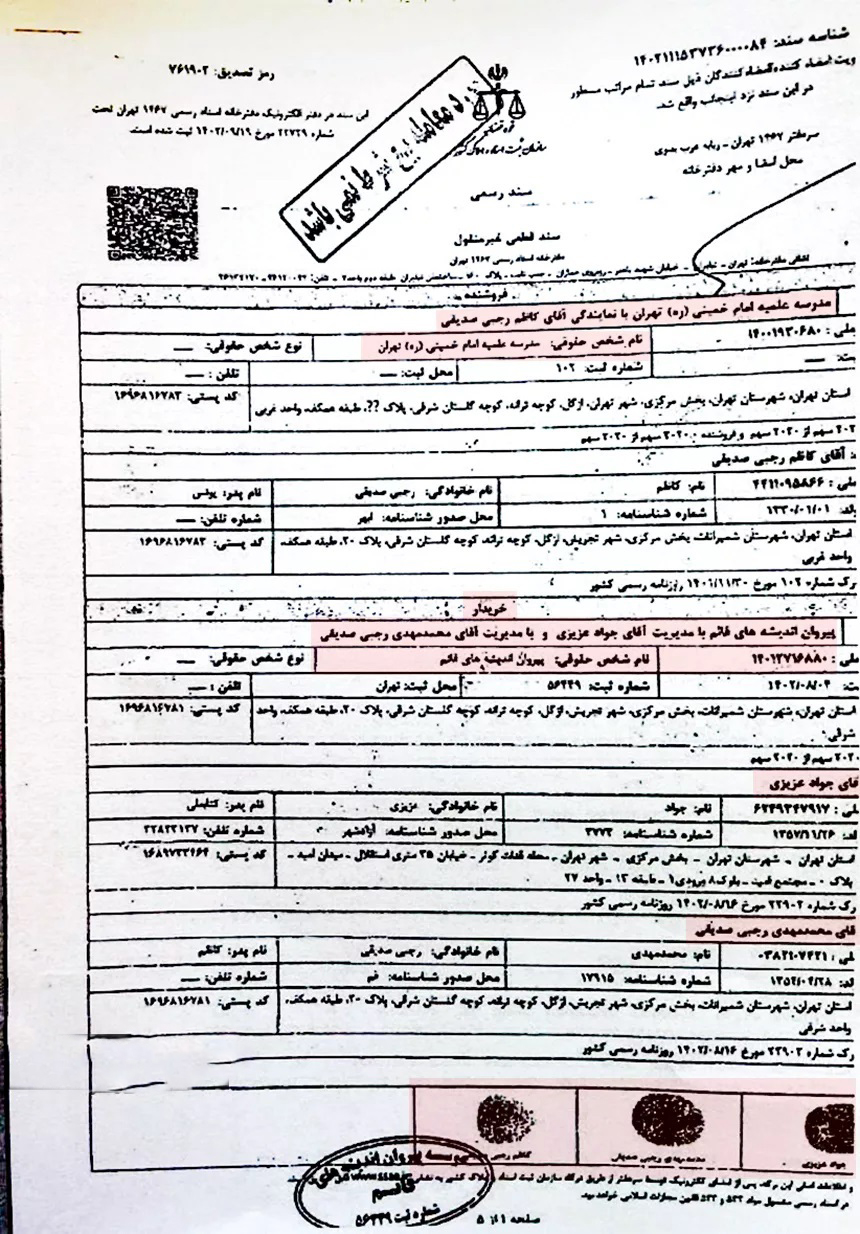 شناسه سند: ۱۴۰۲۱۱۱۵۳۷۳۶۰۰۰۰۸۴
رمز تصدیق: ۷۶۱۹۰۲
هویت امضاء کننده/امضاءکنندگان ذیل سند تمام مراتب مسطور
در این سند نزد اینجانب واقع شد.
این سند در دفتر الکترونیک دفترخانه اسناد رسمی ۱۴۶۷ تهران تحت
شماره ۲۲۷۲۹ مورخ ۱۴۰۲/۰۹/۱۹ ثبت شده است.
سازمان ثبت اسناد و املاک کشور
سردفتر ۱۴۶۷ تهران - ربابه عرب بدوی
محل امضا و مهر دفترخانه
معامله بیع شرط نمی باشد
سند رسمی
سند قطعی غیرمنقول
دفترخانه اسناد رسمی ۱۴۶۷ تهران
فروشنده
مدرسه علمیه امام خمینی (ره) تهران با نمایندگی آقای کاظم رجبی صدیقی
ملی: ۱۴۰۰۱۹۳۰۶۸۰ نام شخص حقوقی: مدرسه علمیه امام خمینی (ره) تهران نوع شخص حقوقی: —
شماره ثبت: ۱۰۲ محل ثبت: — تلفن: —
استان تهران، شهرستان تهران، بخش مرکزی، شهر تهران، ازگل، کوچه ترانه، کوچه گلستان شرقی، پلاک ??، طبقه همکف، واحد غربی کد پستی: ۱۶۹۶۸۱۶۷۸۳
۲۰۲۰ سهم از ۲۰۲۰ سهم و فروشنده: ۲۰۲۰ سهم از ۲۰۲۰ سهم
آقای کاظم رجبی صدیقی
ملی: ۴۴۱۱۰۹۵۸۶۶ نام: کاظم نام خانوادگی: رجبی صدیقی نام پدر: یونس
۱۳۳۰/۰۱/۰۱ شماره شناسنامه: ۱ محل صدور شناسنامه: ابهر شماره تلفن: —
استان تهران، شهرستان شمیرانات، بخش مرکزی، شهر تجریش، ازگل، کوچه ترانه، کوچه گلستان شرقی، پلاک ۲۰، طبقه همکف، کد پستی: ۱۶۹۶۸۱۶۷۸۳
واحد غربی
رک شماره ۱۰۲ مورخ ۱۴۰۱/۱۱/۳۰ روزنامه رسمی کشور
خریدار
پیروان اندیشه های قائم با مدیریت آقای جواد عزیزی و با مدیریت آقای محمدمهدی رجبی صدیقی
ملی: ۱۴۰۱۲۷۱۶۸۸۰ نام شخص حقوقی: پیروان اندیشه های قائم نوع شخص حقوقی: —
ت: ۱۴۰۲/۰۸/۰۴ شماره ثبت: ۵۶۴۴۹ محل ثبت: تهران تلفن: —
استان تهران، شهرستان شمیرانات، بخش مرکزی، شهر تجریش، ازگل، کوچه ترانه، کوچه گلستان شرقی، پلاک ۲۰، طبقه همکف، واحد کد پستی: ۱۶۹۶۸۱۶۷۸۱
شرقی
۲۰۲۰ سهم از ۲۰۲۰ سهم
قای جواد عزیزی
ملی: ۶۲۴۹۳۴۷۹۱۷ نام: جواد نام خانوادگی: عزیزی نام پدر:
۱۳۵۷/۱۱/۲۶ شماره شناسنامه: ۳۷۷۳ محل صدور شناسنامه: آزادشهر شماره تلفن: ۲۲۸۲۲۱۳۷
استان تهران - شهرستان تهران - بخش مرکزی - شهر تهران - محله قنات کوثر - خیابان ۳۵ متری استقلال - میدان امید - کد پستی: ۱۶۸۹۷۳۳۴۶۴
پلاک ۰ - مجتمع امید - بلوک ۸ ورودی ۱ - طبقه ۱۳ - واحد ۲۷
رک شماره ۲۲۹۰۲ مورخ ۱۴۰۲/۰۸/۱۶ روزنامه رسمی کشور
قای محمدمهدی رجبی صدیقی
ملی: ۰۳۸۲۱۰۷۴۲۱ نام: محمدمهدی نام خانوادگی: رجبی صدیقی نام پدر: کاظم
۱۳۵۲/۰۴/۲۸ شماره شناسنامه: ۱۷۹۱۵ محل صدور شناسنامه: قم شماره تلفن: —
استان تهران، شهرستان شمیرانات، بخش مرکزی، شهر تجریش، ازگل، کوچه ترانه، کوچه گلستان شرقی، پلاک ۲۰، طبقه همکف، کد پستی: ۱۶۹۶۸۱۶۷۸۱
واحد شرقی
رک شماره ۲۲۹۰۲ مورخ ۱۴۰۲/۰۸/۱۶ روزنامه رسمی کشور
جواد عزیزی محمدمهدی رجبی صدیقی کاظم رجبی
موسسه پیروان اندیشه های
قائم
شماره ثبت ۵۶۴۴۹
صفحه ۱ از ۵